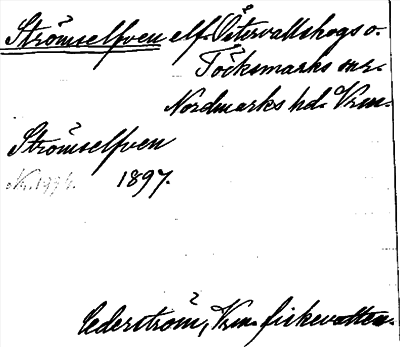 Strömselfven elf. Östervallskogs o.
Töcksmarks snr.
Nordmarks hd. Vrm.
Strömselfven
1897.
Cederström, Vrm. fiskevatten.